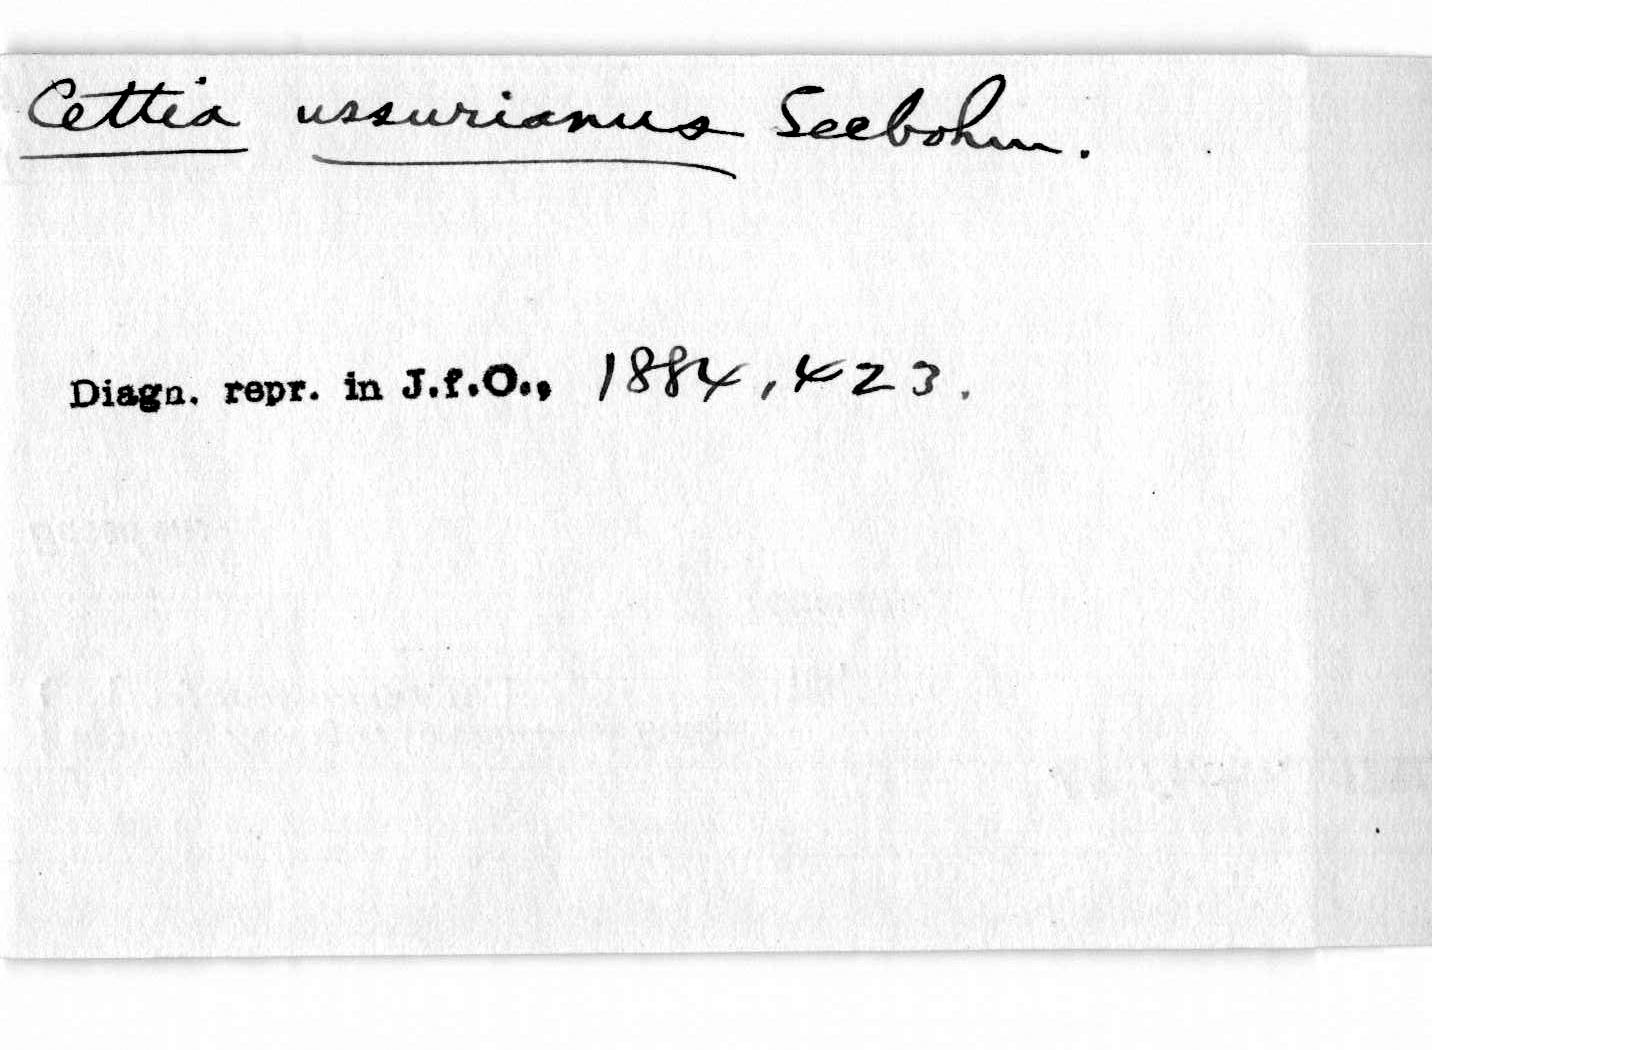 Cettia ussurianus Seebohm.
Diagn. repr. in J.f.O., 1884, 423.